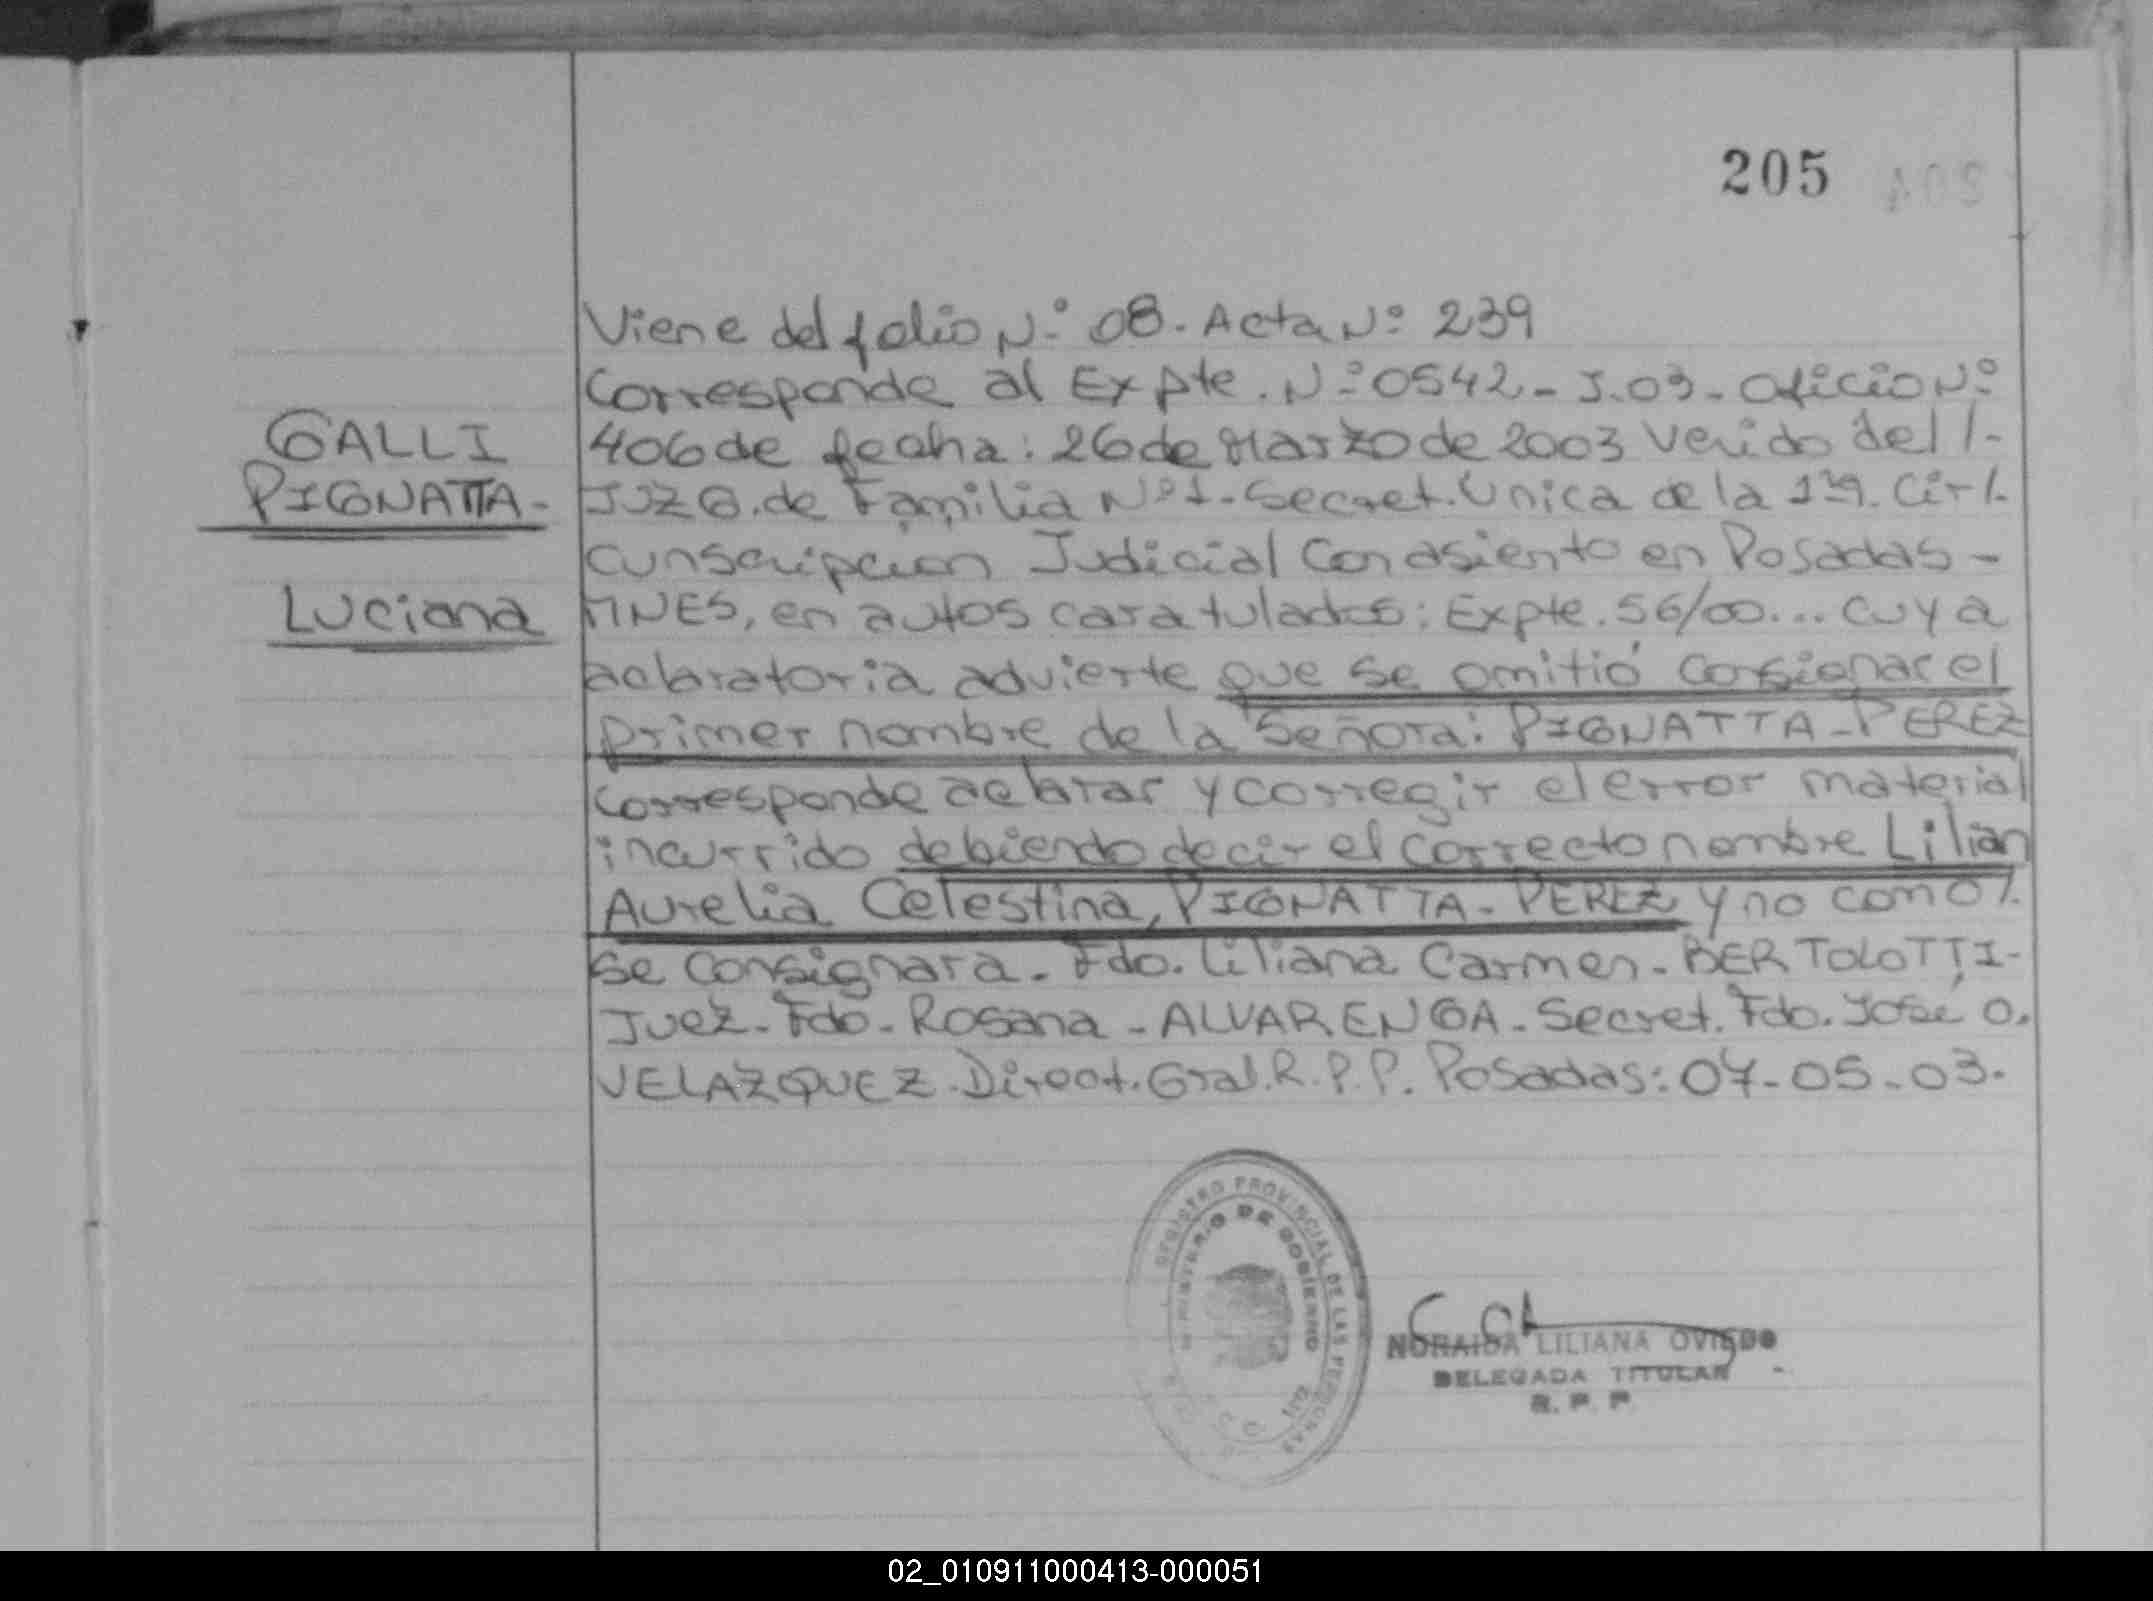 205
204
Viene del folio N.º 08. Acta Nº 239
Corresponde al Expte. Nº 0542 - J.03 - Oficio Nº
GALLI
406 de fecha: 26 de Marzo de 2003 Venido del /-
PIGNATTA -
JUZG. de Familia Nº 1 - Secret. Unica de la 1ra. Cir /.
cunscripcion Judicial Con asiento en Posadas -
Luciana
MNES, en autos caratulados: Expte. 56/00... cuya
aclaratoria advierte que se omitió consignar el
primer nombre de la Señora: PIGNATTA - PEREZ
Corresponde aclarar y corregir el error material
incurrido debiendo decir el correcto nombre Lilian
Aurelia Celestina, PIGNATTA - PEREZ y no como /.
se consignara. Fdo. Liliana Carmen - BERTOLOTTI -
Juez - Fdo - Rosana - ALVARENGA - Secret. Fdo. José O.
VELAZQUEZ. Direct. Gral. R.P.P. Posadas: 07-05-03.
REGISTRO PROVINCIAL DE LAS PERSONAS
MINISTERIO DE GOBIERNO
NORAIDA LILIANA OVIEDO
DELEGADA TITULAR
R. P. P.
02_010911000413-000051